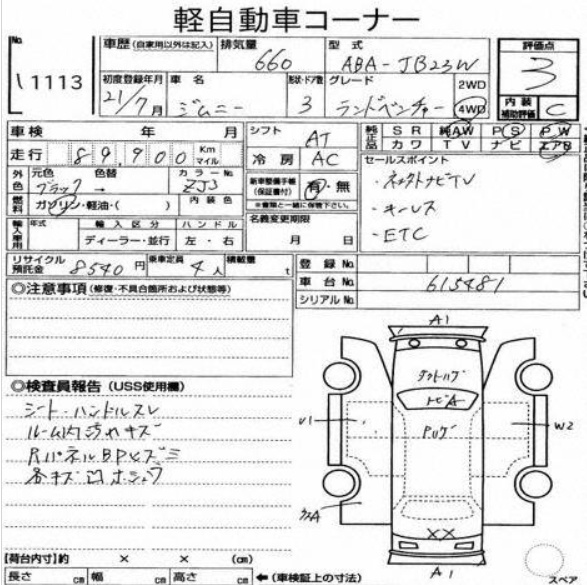 軽自動車コーナー
No. 11113
車歴 (自家用以外は記入) 排気量 660 型式 ABA-JB23W
評価点 3
初度登録年月 21/7月 車名 ジムニー 形状・ドア数 3 グレード ランドベンチャー 2WD 4WD
内装補助評価 C
車検 年 月 シフト AT
純正品 SR 純AW PS PW
カワ TV ナビ エアB
走行 89,900 Km マイル 冷房 AC
セールスポイント
外色 元色 ブラック 色替 → カラーNo. ZJ3
新車整備手帳 (保証書付) 有・無
※書類と一緒に保管下さい。
・キーレス
・ETC
燃料 ガソリン・軽油・( ) 内装色
名義変更期限 月 日
輸入車用 年式 輸入区分 ハンドル
ディーラー・並行 左・右
リサイクル預託金 8540円 乗車定員 4人 積載量 t
登録No.
車台No. 615481
シリアルNo.
◎注意事項 (修復・不具合箇所および状態等)
◎検査員報告 (USS使用欄)
シート・ハンドルスレ
ルーム内汚れキズ
RパネルBPヒズミ
各キズ凹ホシュウ
A1
トビA
U1
W2
XX
A1
スペア
【荷台内寸】約 × × (cm)
長さ cm 幅 cm 高さ cm ←(車検証上の寸法)